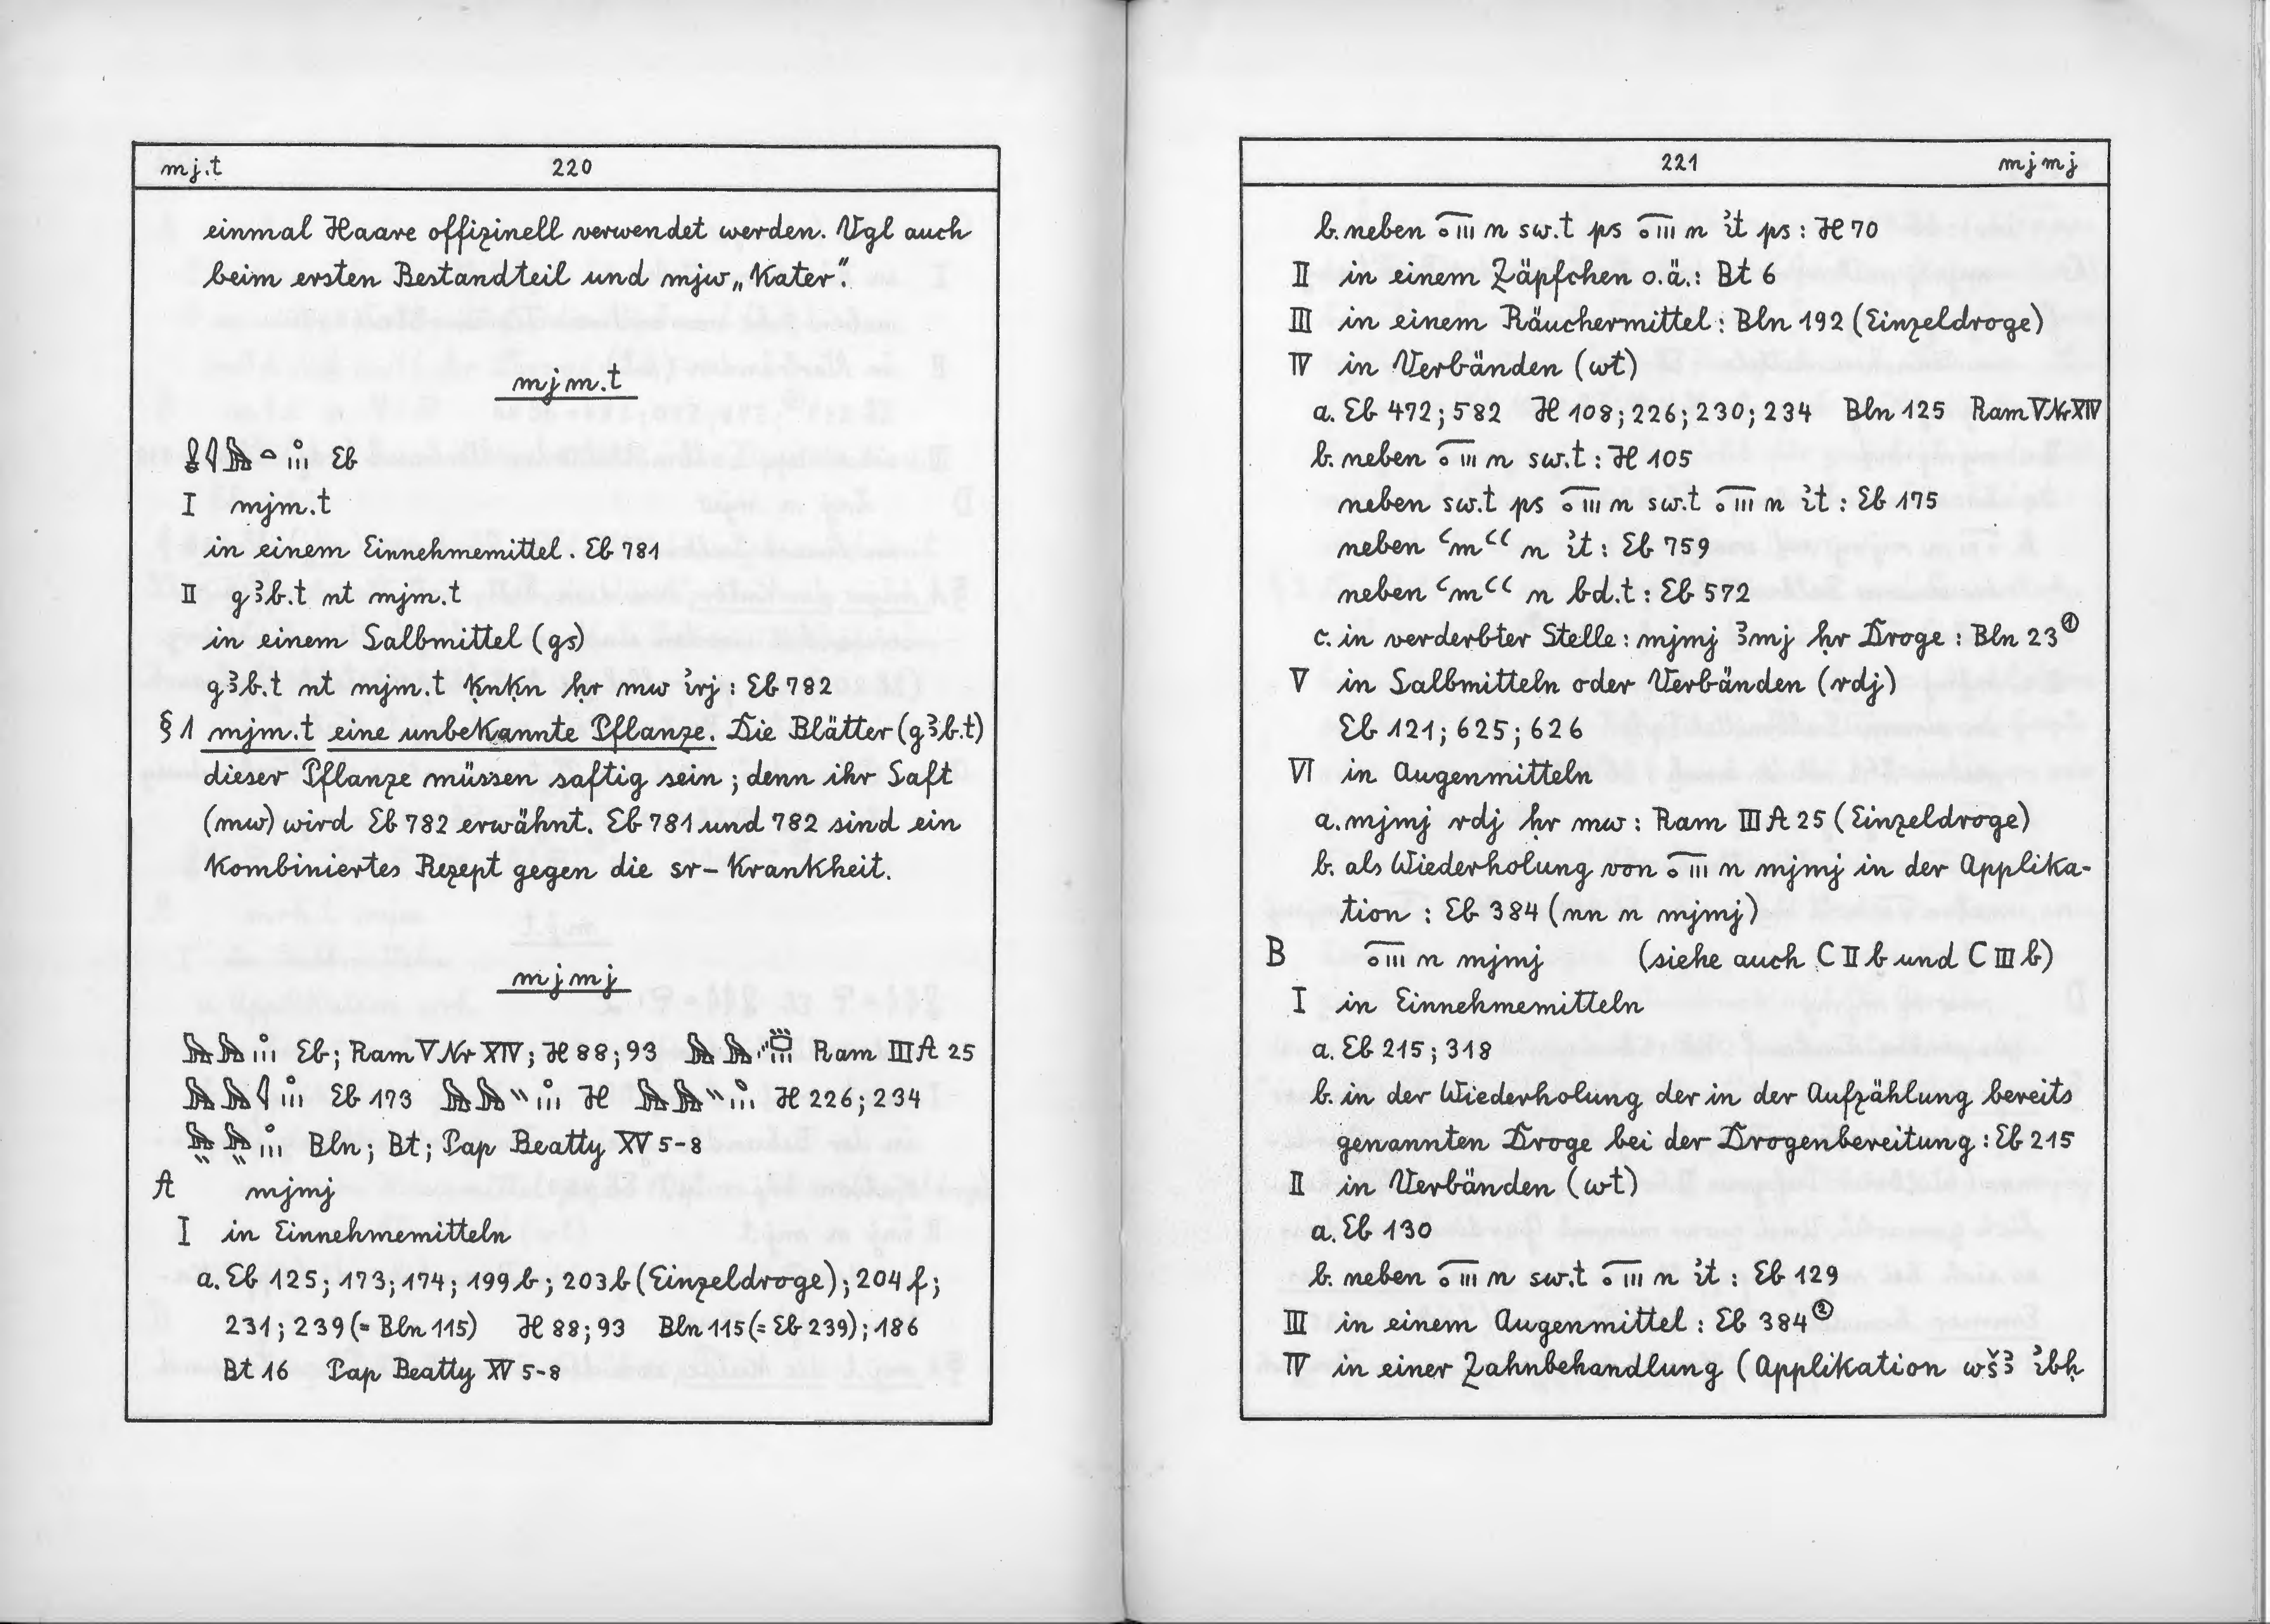 mj.t 220
einmal Haare offizinell verwendet werden. Vgl auch
beim ersten Bestandteil und mjw „Kater“.
mjm.t
Eb
I mjm.t
in einem Einnehmemittel. Eb 781
II gꜣb.t nt mjm.t
in einem Salbmittel (gs)
gꜣb.t nt mjm.t ḳnḳn ḥr mw ı͗rj : Eb 782
§ 1 mjm.t eine unbekannte Pflanze. Die Blätter (gꜣb.t)
dieser Pflanze müssen saftig sein; denn ihr Saft
(mw) wird Eb 782 erwähnt. Eb 781 und 782 sind ein
kombiniertes Rezept gegen die sr-Krankheit.
mjmj
Eb; Ram V Nr XIV; H 88; 93 Ram III A 25
Eb 173 H H 226; 234
Bln; Bt; Pap Beatty XV 5-8
A mjmj
I in Einnehmemitteln
a. Eb 125; 173; 174; 199b; 203b (Einzeldroge); 204f;
231; 239 (= Bln 115) H 88; 93 Bln 115 (= Eb 239); 186
Bt 16 Pap Beatty XV 5-8
221 mjmj
b. neben n sw.t ps n ı͗t ps : H 70
II in einem Zäpfchen o.ä.: Bt 6
III in einem Räuchermittel : Bln 192 (Einzeldroge)
IV in Verbänden (wt)
a. Eb 472; 582 H 108; 226; 230; 234 Bln 125 Ram V Nr XIV
b. neben n sw.t : H 105
neben sw.t ps n sw.t n ı͗t : Eb 175
neben ꜥmꜥꜥ n ı͗t : Eb 759
neben ꜥmꜥꜥ n bd.t : Eb 572
c. in verderbter Stelle : mjmj ꜣmj ḥr Droge : Bln 23 ①
V in Salbmitteln oder Verbänden (rdj)
Eb 121; 625; 626
VI in Augenmitteln
a. mjmj rdj ḥr mw : Ram III A 25 (Einzeldroge)
b. als Wiederholung von n mjmj in der Applika-
tion : Eb 384 (nn n mjmj)
B n mjmj (siehe auch C II b und C III b)
I in Einnehmemitteln
a. Eb 215; 318
b. in der Wiederholung der in der Aufzählung bereits
genannten Droge bei der Drogenbereitung : Eb 215
II in Verbänden (wt)
a. Eb 130
b. neben n sw.t n ı͗t : Eb 129
III in einem Augenmittel : Eb 384 ②
IV in einer Zahnbehandlung (Applikation wšꜣ ı͗bḥ